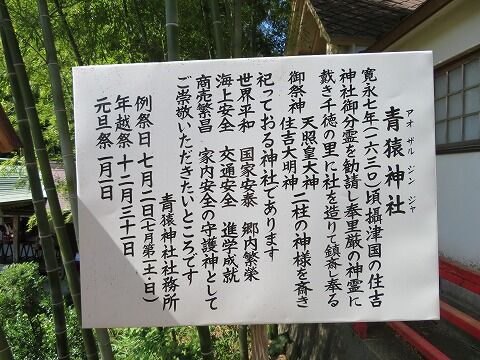 青猿神社
アオ ザル ジン ジャ
寛永七年(一六三〇)頃摂津国の住吉
神社御分霊を勧請し奉里厳の神霊に
戴き千徳の里に社を造りて鎮斎し奉る
御祭神 天照皇大神
住吉大明神 二柱の神様を斎き
祀っておる神社であります
世界平和 国家安泰 郷内繁栄
海上安全 交通安全 進学成就
商売繁昌 家内安全の守護神として
ご崇敬いただきたいところです
青猿神社社務所
例祭日 七月二日(七月第一土・日)
年越祭 十二月三十一日
元旦祭 一月一日